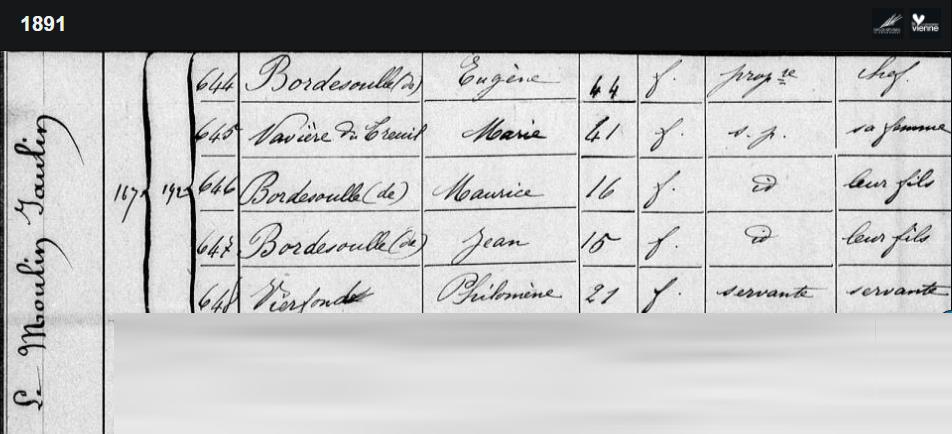 1891
vienne
644 Bordesoulle (de) Eugène 44 f. prop.re chef.
645 Vavière du Treuil Marie 41 f. s. p. sa femme
167 192 646 Bordesoulle (de) Maurice 16 f. id leur fils
647 Bordesoulle (de) Jean 15 f. id leur fils
648 Philomène 21 f. servante servante
Le Moulin